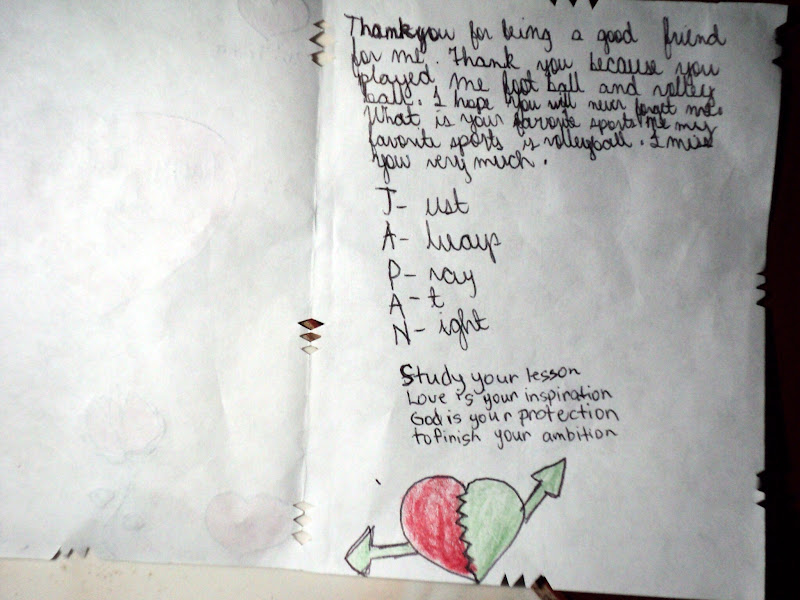 Thankyou for being a good friend
for me. Thank you because you
played me foot ball and volley
ball. I hope you will never forget me.
What is your favorite sports? Me my
favorite sports is volleyball. I miss
you very much.
J- ust
A- lways
P- ray
A- t
N- ight
Study your lesson
Love is your inspiration
God is your protection
to finish your ambition